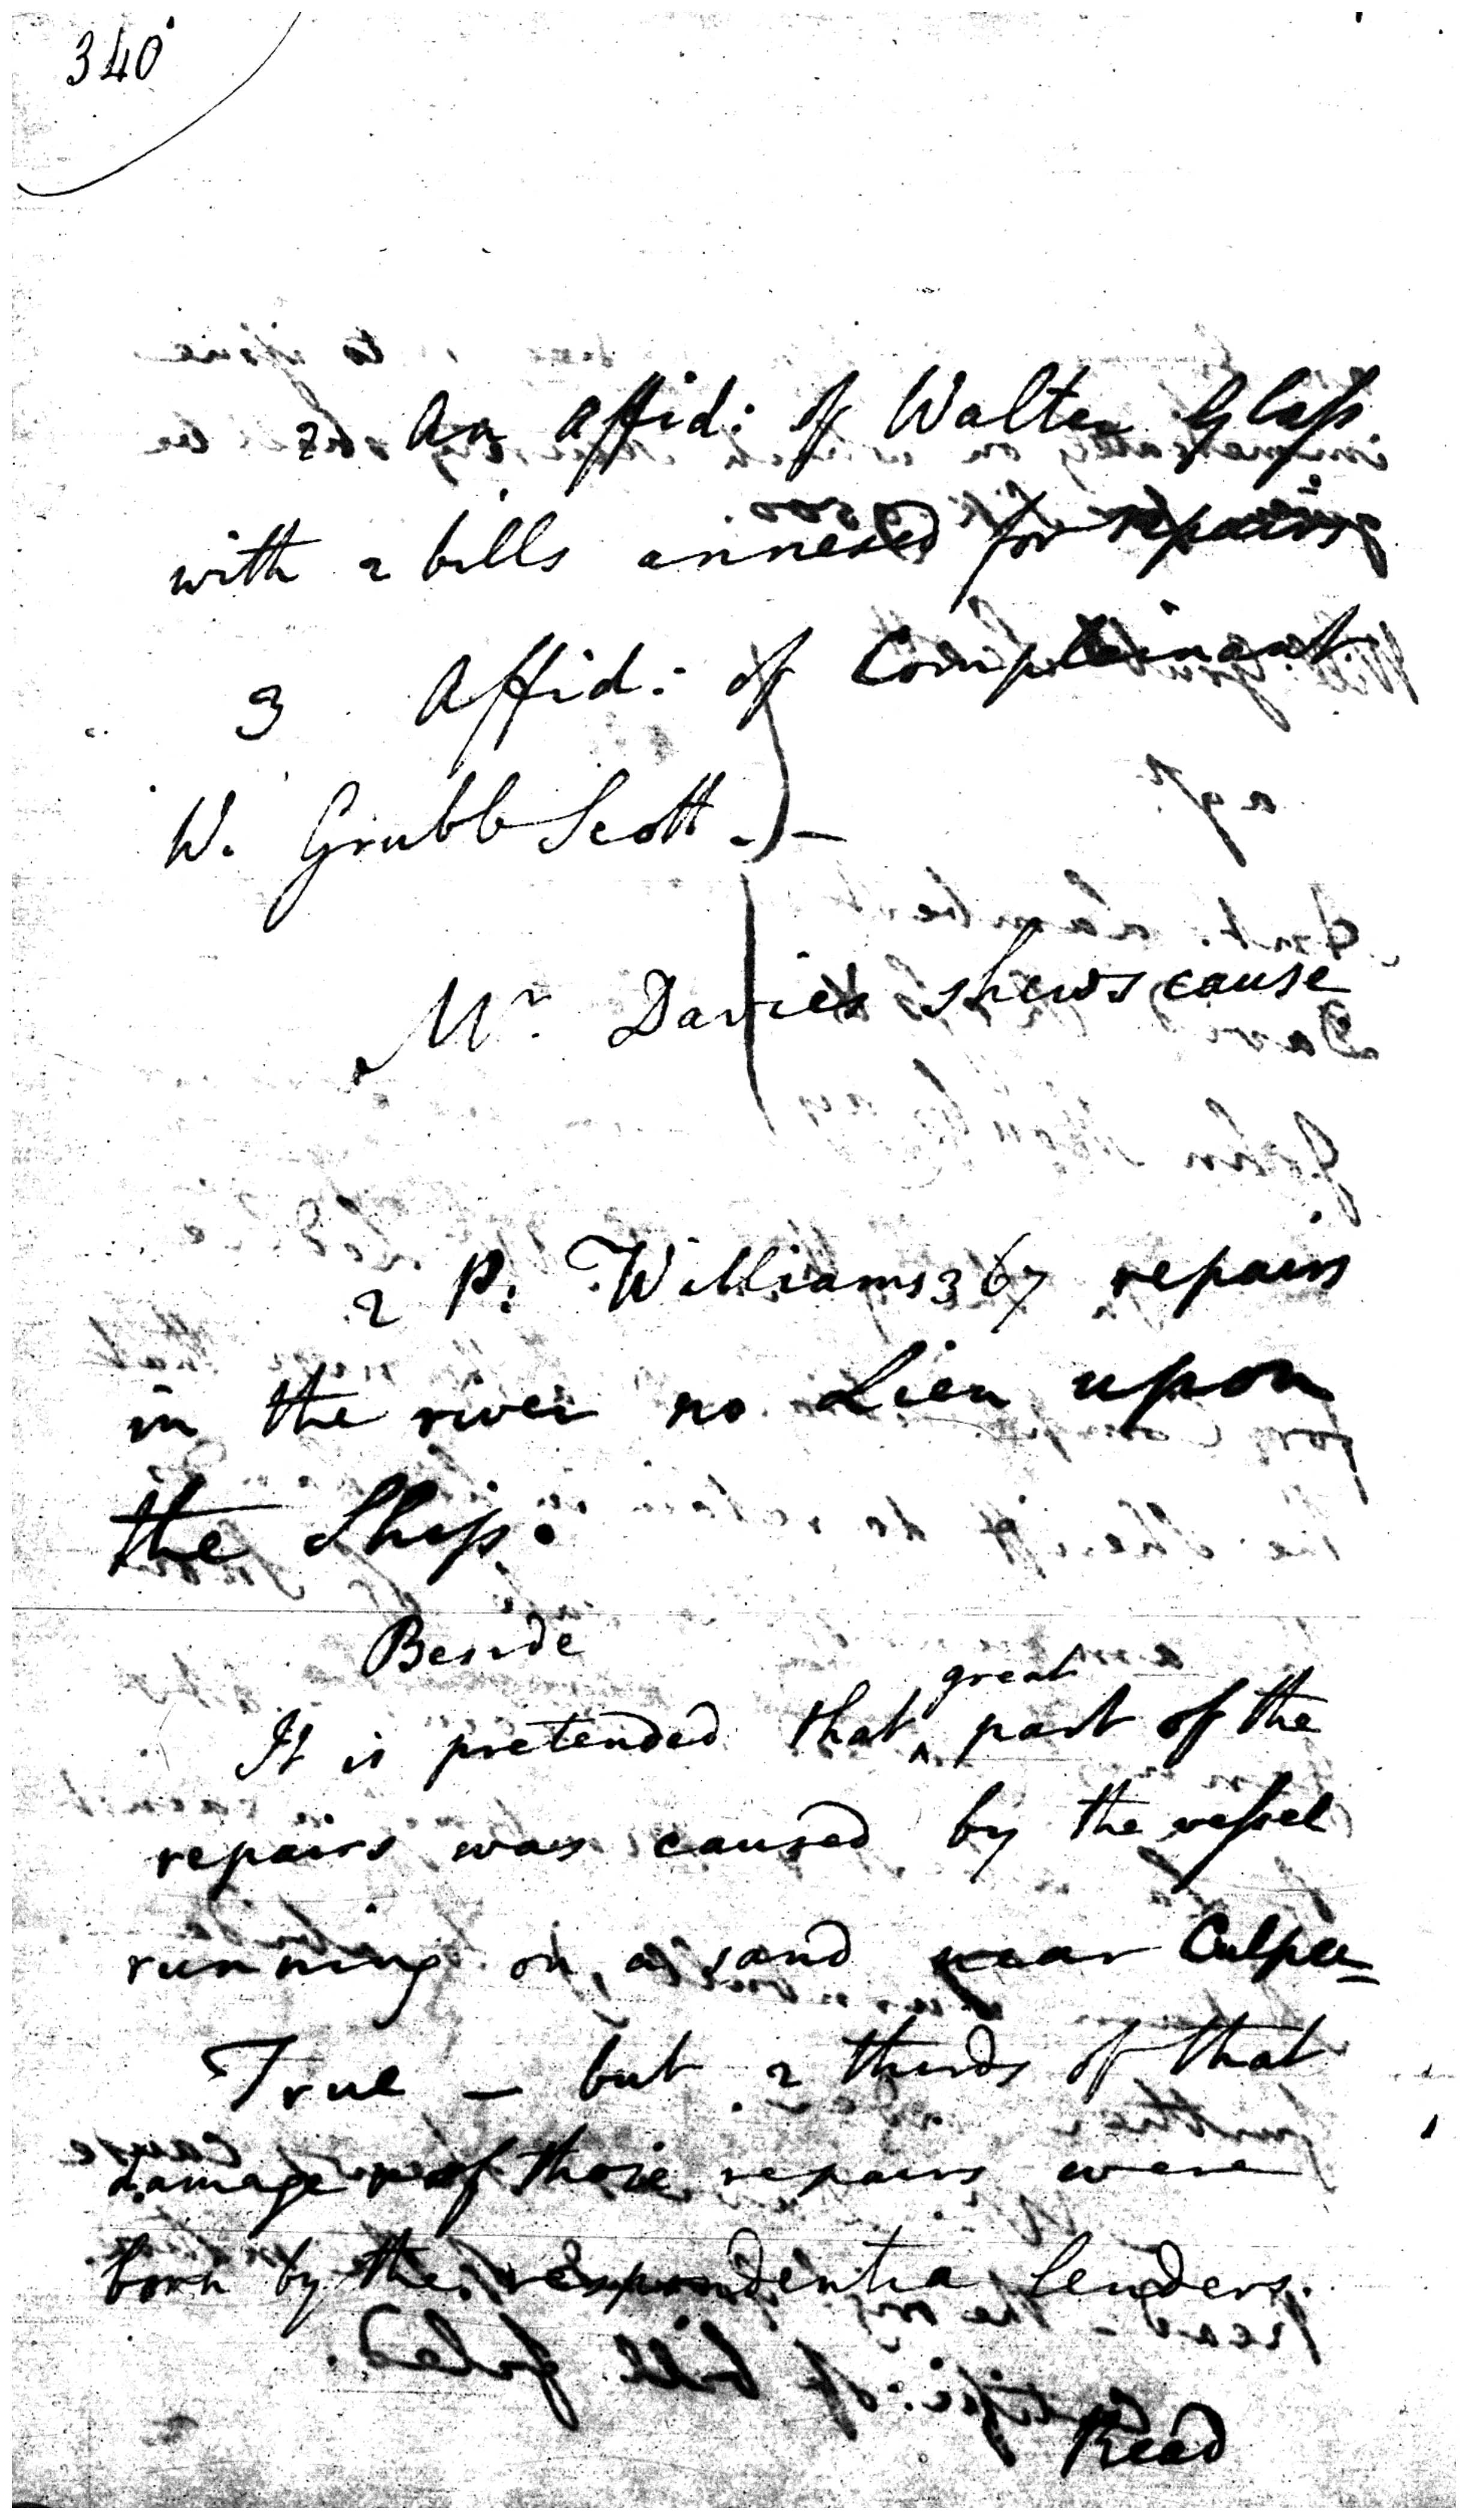 340
2 An Affid: of Walter Glass
with 2 bills annexed for repairs
3 Affid: of Complainant
W. Grubb Scott -
Mr. Davies shews cause
2 P. Williams 367 repairs
in the river no Lien upon
the Ship.
Beside
great
It is pretended that ^ part of the
repairs was caused by the vessel
running on a sand near Culpee-
True - but 2 thirds of that
damage of those repairs were
born by the respondentia lenders.
Read